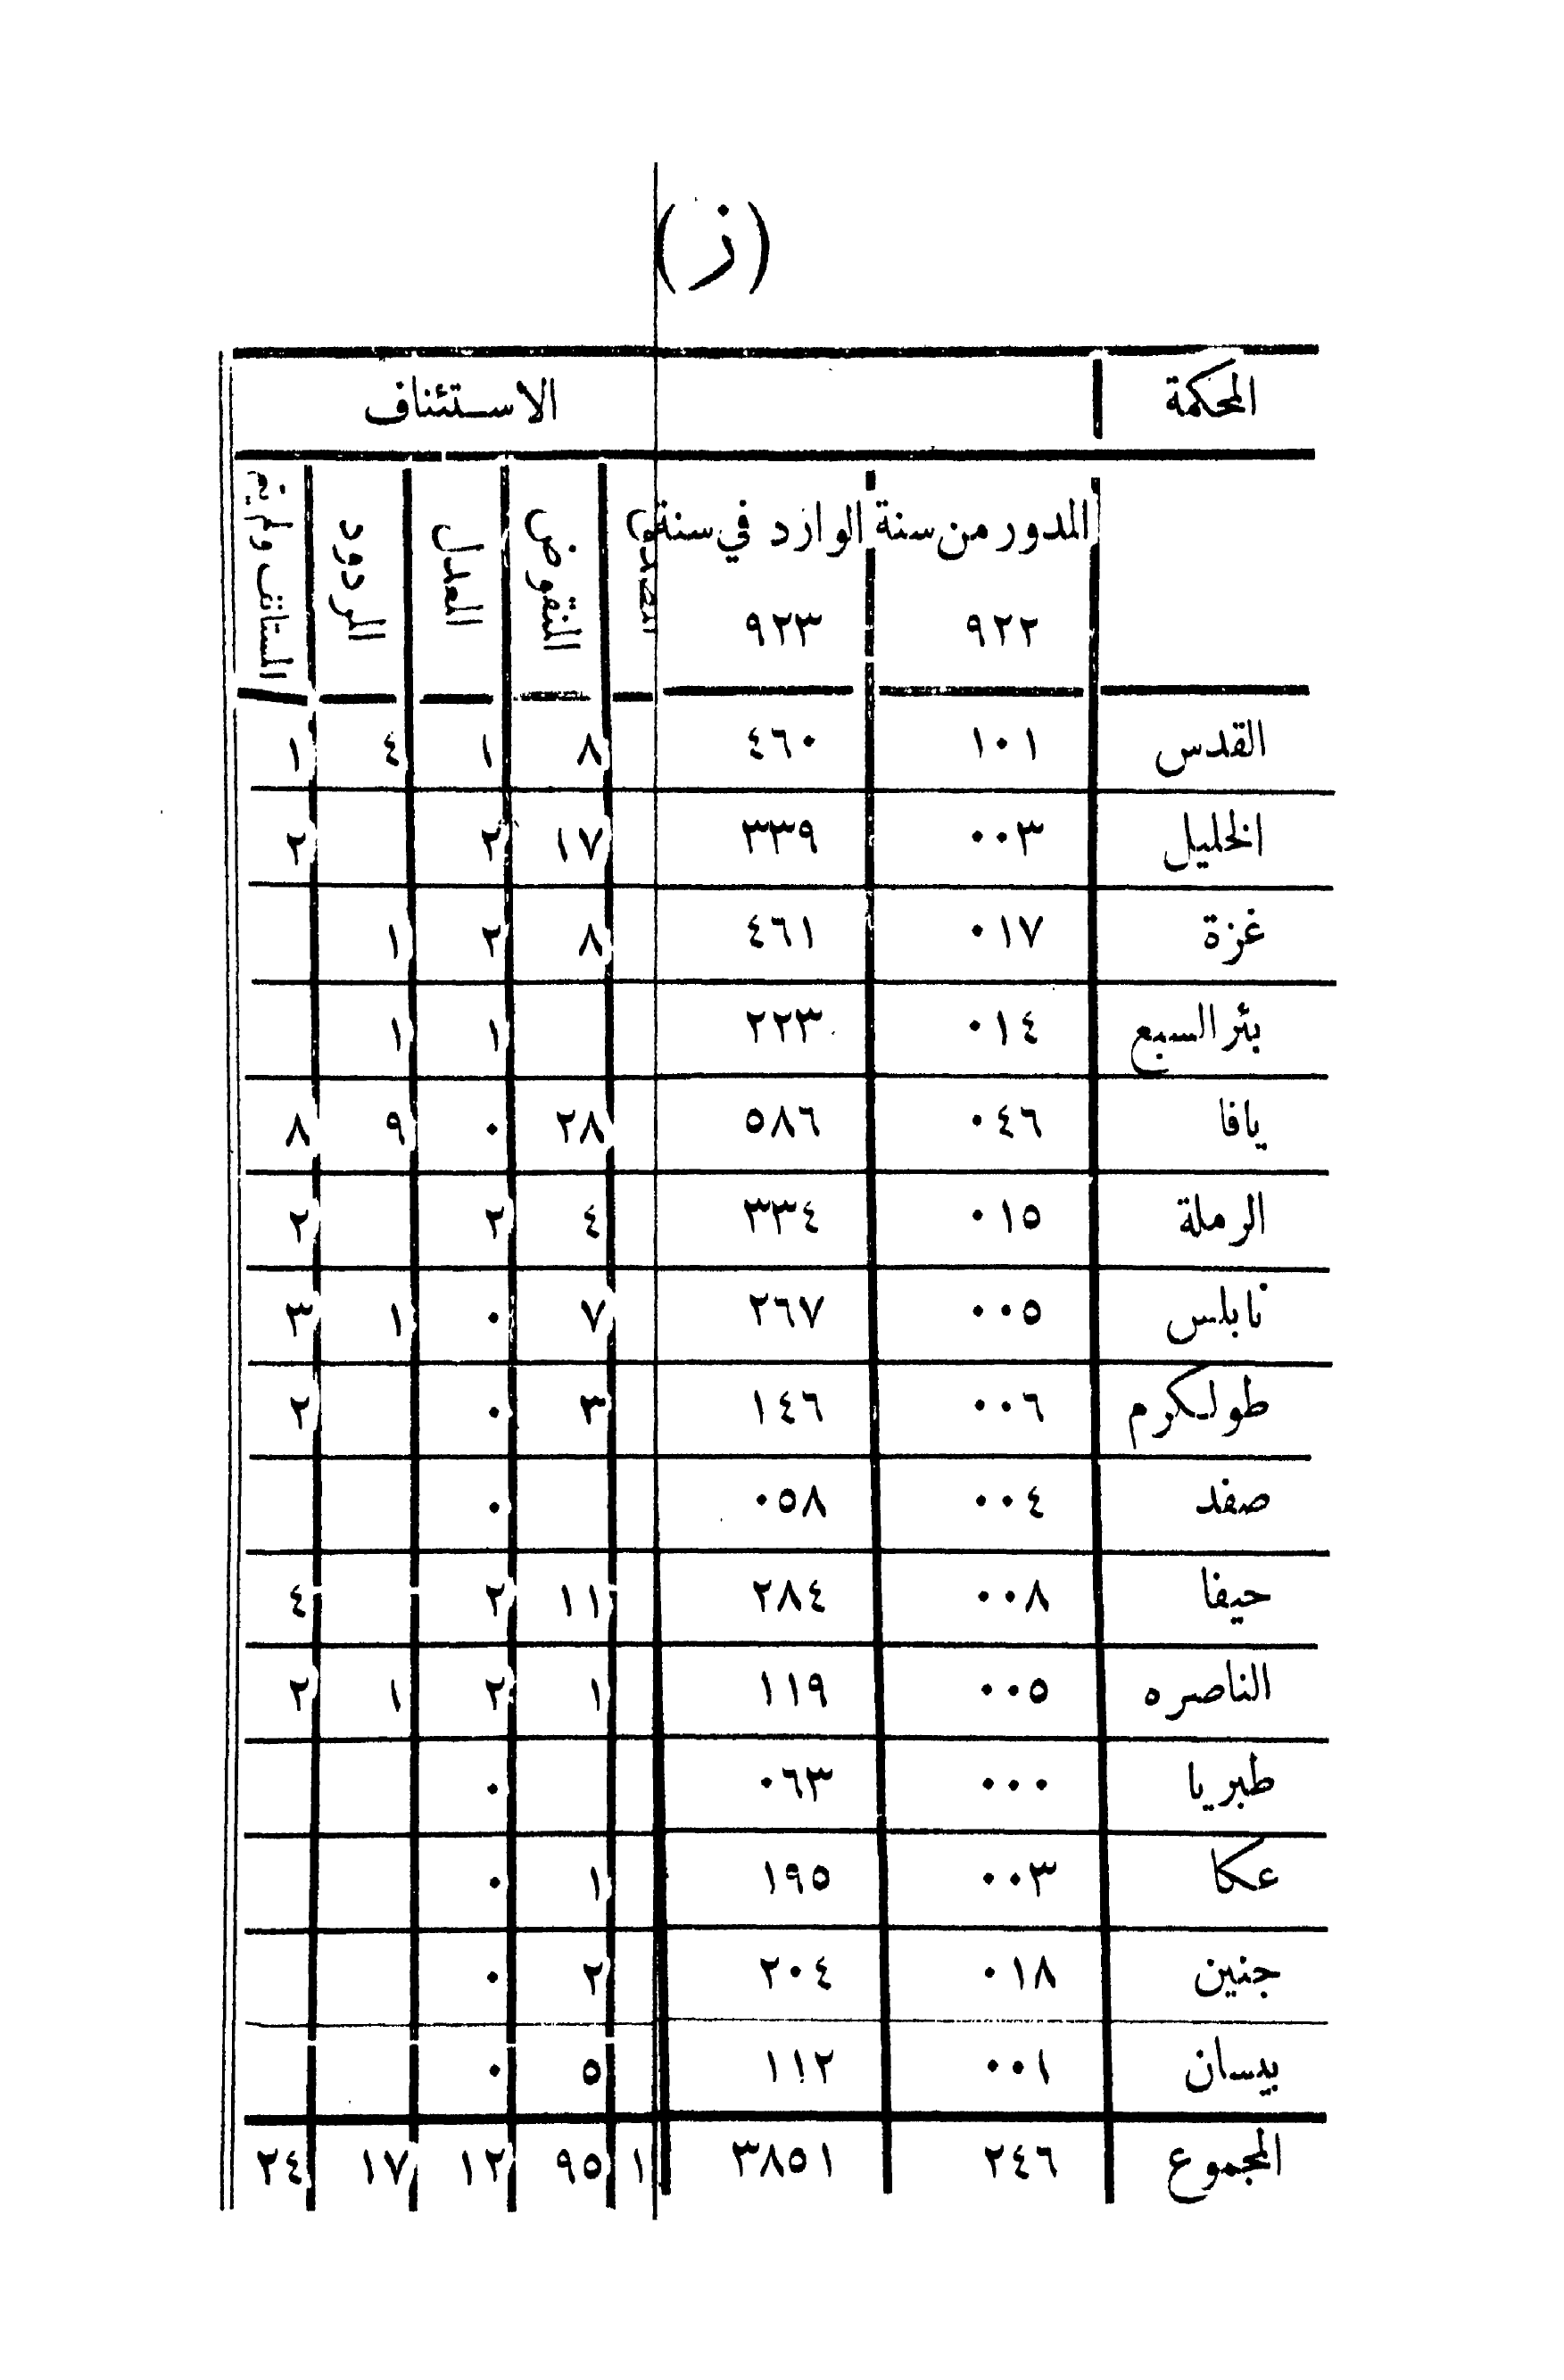 (ز)
المحكمة الاستئناف
المدور من سنة ٩٢٢ الوارد في سنة ٩٢٣ المنقوض المعدل المردود المستانف ولم
القدس ١٠١ ٤٦٠ ٨ ١ ٤ ١
الخليل ٠٠٣ ٣٣٩ ١٧ ٢ ٢
غزة ٠١٧ ٤٦١ ٨ ٢ ١
بئر السبع ٠١٤ ٢٢٣ ١ ١
يافا ٠٤٦ ٥٨٦ ٢٨ ٠ ٩ ٨
الرملة ٠١٥ ٣٣٤ ٤ ٢ ٢
نابلس ٠٠٥ ٢٦٧ ٧ ٠ ١ ٣
طولكرم ٠٠٦ ١٤٦ ٣ ٠ ٢
صفد ٠٠٤ ٠٥٨ ٠
حيفا ٠٠٨ ٢٨٤ ١١ ٢ ٤
الناصره ٠٠٥ ١١٩ ١ ٢ ١ ٢
طبريا ٠٠٠ ٠٦٣ ٠
عكا ٠٠٣ ١٩٥ ١ ٠
جنين ٠١٨ ٢٠٤ ٢ ٠
بيسان ٠٠١ ١١٢ ٥ ٠
المجموع ٢٤٦ ٣٨٥١ ١ ٩٥ ١٢ ١٧ ٢٤